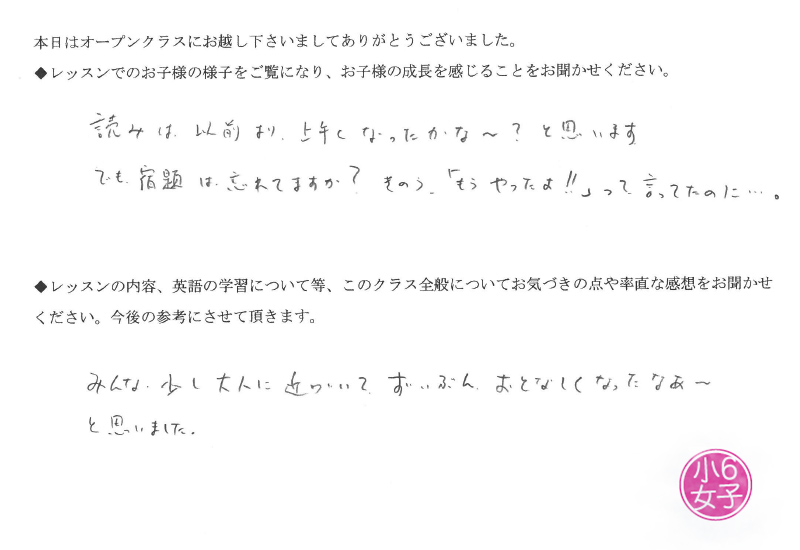 本日はオープンクラスにお越し下さいましてありがとうございました。
◆レッスンでのお子様の様子をご覧になり、お子様の成長を感じることをお聞かせください。
読みは、以前より、上手くなったかな～？と思います
でも、宿題は、忘れてますか？きのう、「もうやったよ!!」って言ってたのに…。
◆レッスンの内容、英語の学習について等、このクラス全般についてお気づきの点や率直な感想をお聞かせ
ください。今後の参考にさせて頂きます。
みんな、少し大人に近づいて、ずいぶん、おとなしくなったなあ～
と思いました。
小6
女子